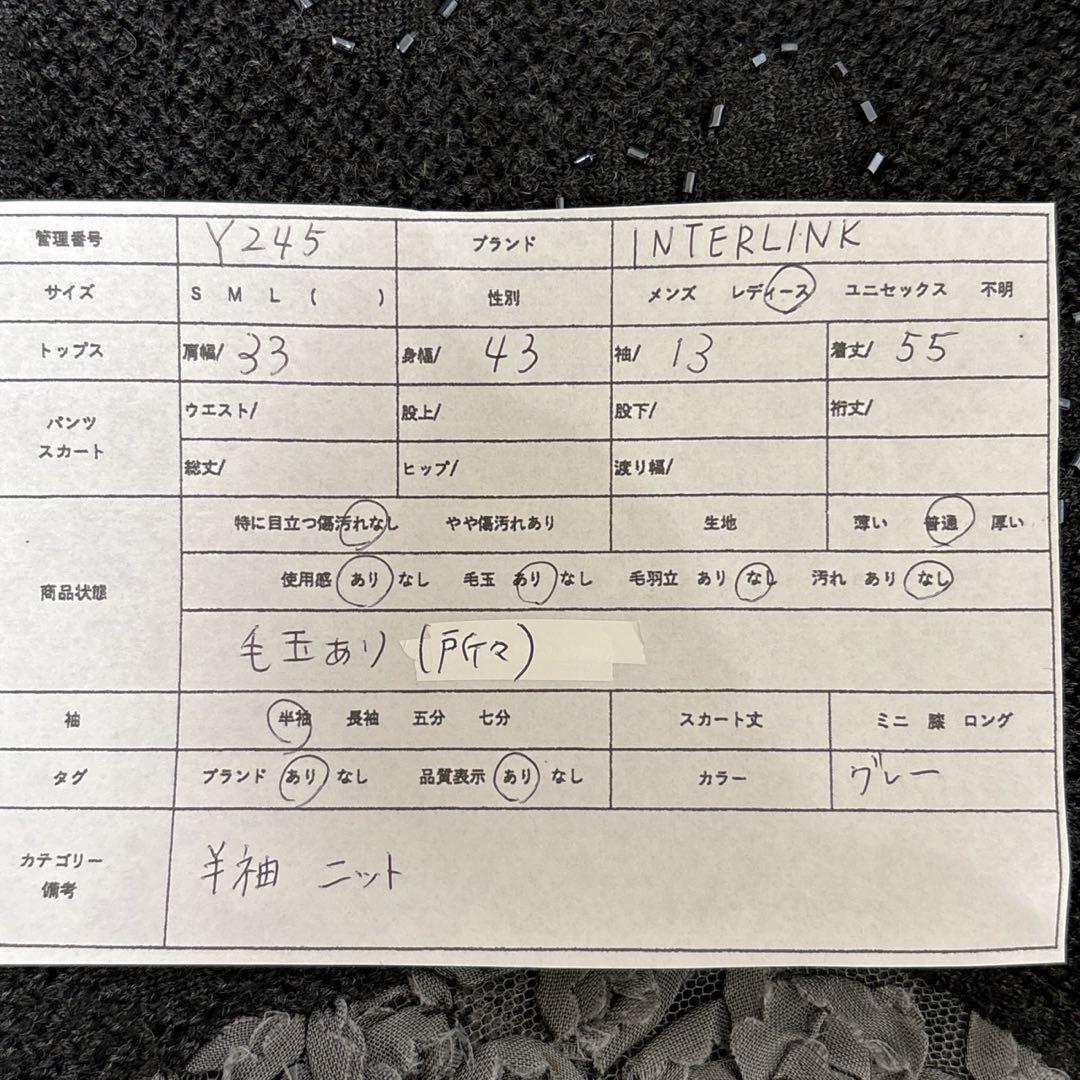 管理番号 Y245 ブランド INTERLINK
サイズ S M L ( ) 性別 メンズ レディース ユニセックス 不明
トップス 肩幅/ 33 身幅/ 43 袖/ 13 着丈/ 55
パンツ スカート
ウエスト/ 股上/ 股下/ 裄丈/
総丈/ ヒップ/ 渡り幅/
商品状態
特に目立つ傷汚れなし やや傷汚れあり 生地 薄い 普通 厚い
使用感 あり なし 毛玉 あり なし 毛羽立 あり なし 汚れ あり なし
毛玉あり (所々)
袖 半袖 長袖 五分 七分 スカート丈 ミニ 膝 ロング
タグ ブランド あり なし 品質表示 あり なし カラー グレー
カテゴリー 備考
半袖 ニット